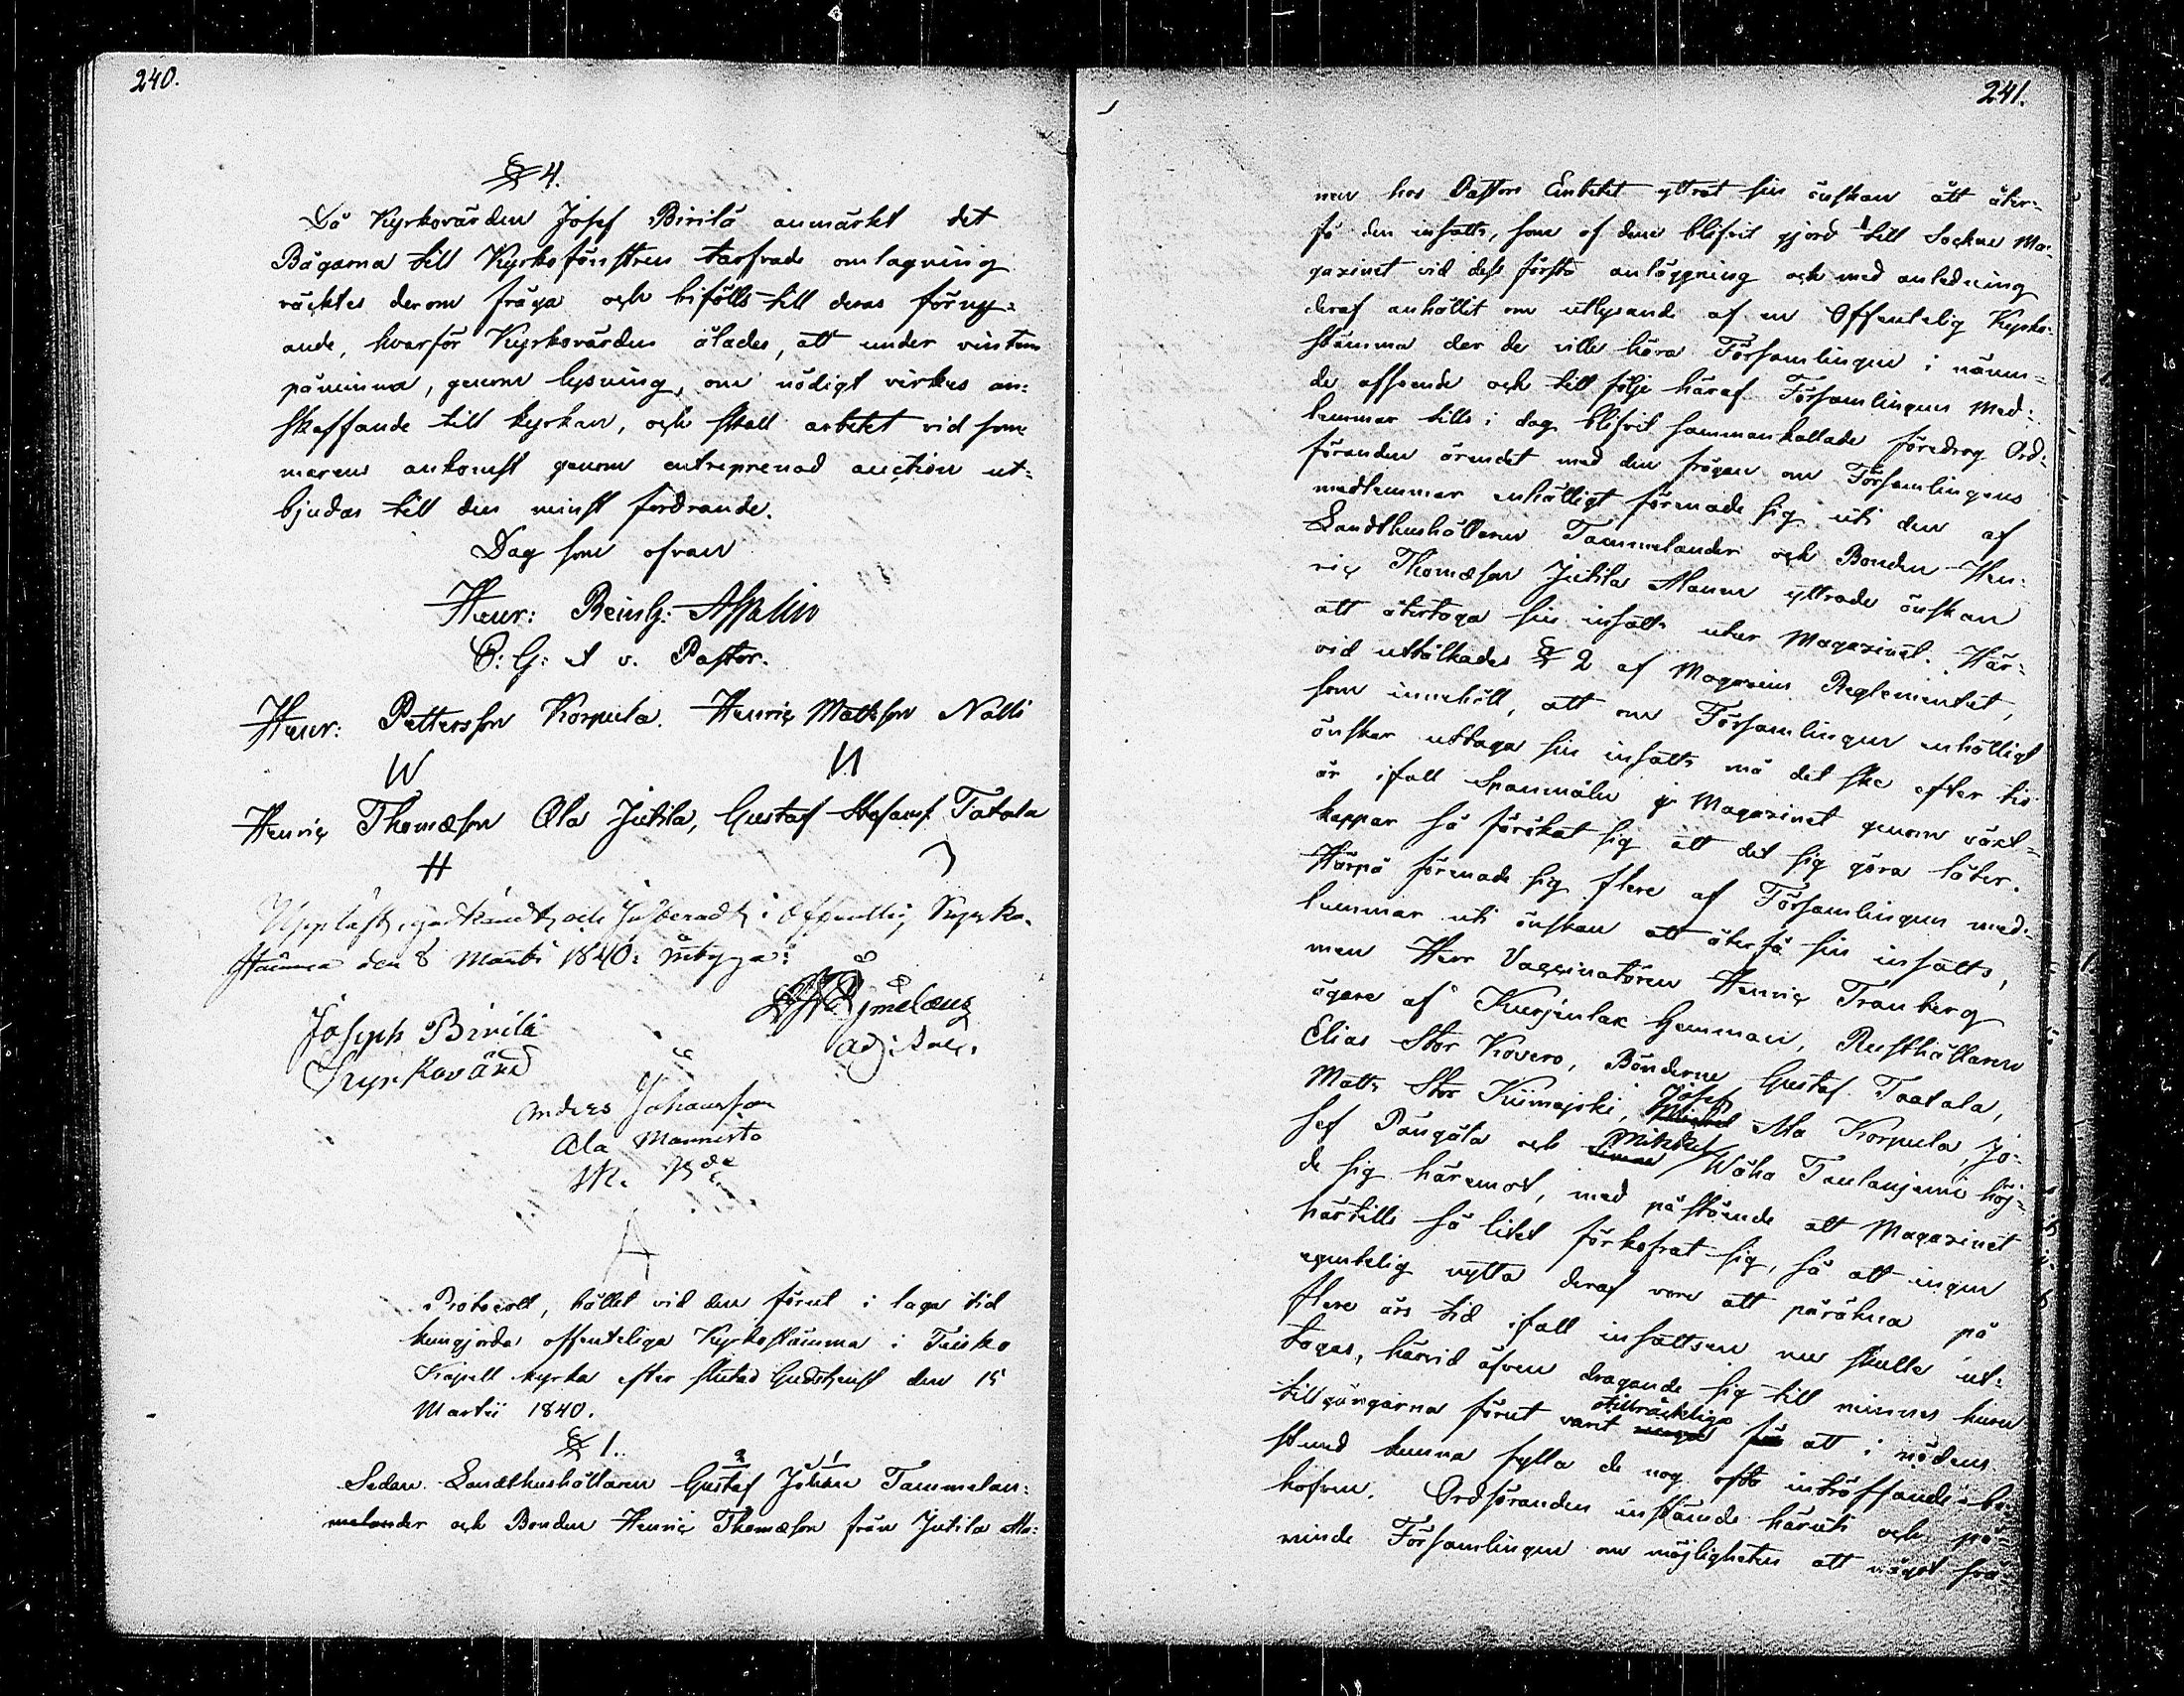 240.
§ 4.
Då Kyrkovärden Josef Birilä anmärkt det
Bågarna till Kyrkofönstren tarfvade omlagning
väcktes derom fråga och bifölls till deras förny-
ande, hvarför Kyrkovärden ålades, att under vintern
påminna, genom lysning, om nödigt virkes an-
skaffande till kyrkan, och skall arbetet vid som
marens ankomst genom entreprenad auction ut-
bjudas till den minst fordrande.
Dag som ofvan
Henr: Reinh: Aspelin
C: G: et v. Pastor.
Henr: Pettersson Korpula. Henric Mattsson Nalli
Henric Thomæson Ala Jutila, Gustaf Stefansf. Tatala
H
Uppläst, godkändt och Justeradt i Offentlig Kyrko-
stämma den 8 Martii 1840: intyga:
Joseph Birilä
Kyrkovärd
Anders Johansson
Ala Mannisto
A
Protocoll, hållet vid den förut i laga tid
kungjorda offenteliga Kyrkostämma i Teisko
Kapell kyrka efter slutad Gudstjenst den 15
Martii 1840.
§ 1.
Sedan Landthushållaren Gustaf Johan Tammelan-
melander och Bonden Henric Thomæson från Jutila Ala-
241.
nen hos Pastors Embetet yttrat sin önskan att åter-
få den insatts, som af dem blifvit gjord till Sockne Ma-
gazinet vid dess första anläggning och med anledning
deraf anhållit om utlysande af en Offentelig Kyrko-
stämma der de ville höra Församlingen i nämn-
de afseende och till följe häraf Församlingens Med-
lemmar tills i dag blifvit sammankallade föredrog Ord-
föranden ärendet med den frågan om Församlingens
medlemmar enhälligt förenade sig uti den af
Landthushållaren Tammelander och Bonden Hen-
ric Thomæson Jutila Alanen yttrade önskan
att återtaga sin insatts utur Magazinet. Här-
vid uttolkades § 2 af Magazins Reglementet,
som innehöll, att om Församlingen enhälligt
önskar uttaga sin insatts må det ske efter tio
år ifall Spannmåln i Magazinet genom växt-
kappar så förökat sig att det sig göra låter.
Härpå förenade sig flere af Församlingens med-
lemmar uti önskan att återfå sin insatts,
men Herr Vaccinatören Henric Tranberg
ägare af Kurjenlax Hemman, Rusthållaren
Elias Stor Kovero, Bönderne Gustaf Taatala,
Josef
Matts Stor Kiimajoki, Michel Ala Korpula, Jo-
Mikkel
sef Pangåla och Simon Wäha Taulanjemi höj-
de sig häremot, med påstående att Magazinet
härtills så litet förkofrat sig, så att ingen
egentelig nytta deraf vore att påräkna på
flere års tid ifall insattsen nu skulle ut-
tagas, härvid äfven dragande sig till minnes huru
tillräckliga
tillgångarna förut varit för att i nödens
stund kunna fylla de nog ofta inträffande be-
hofven. Ordföranden instämde häruti och på-
minde Församlingen om möjligheten att något